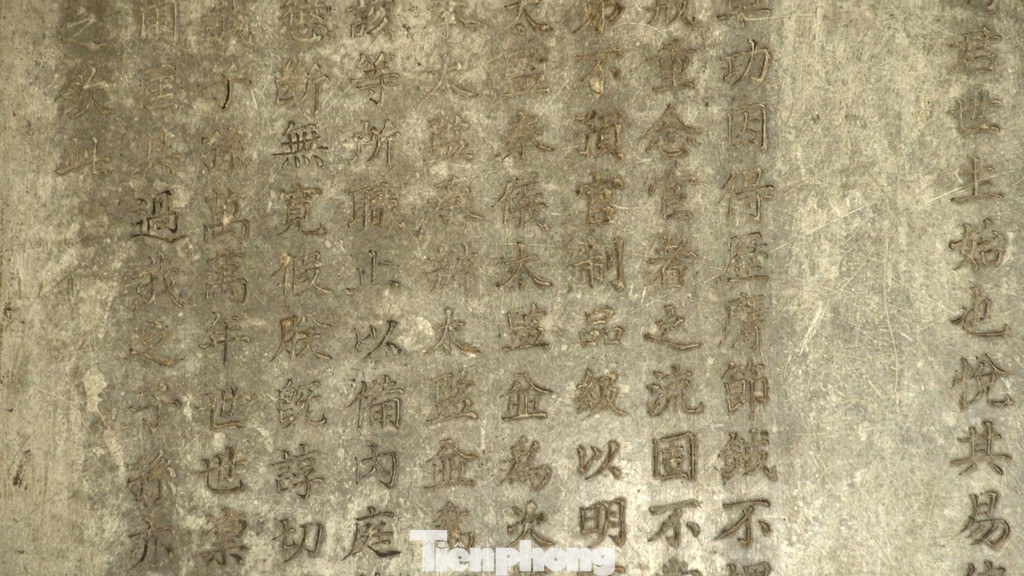 君世上始也悅其易
功因得歷膺節鉞不
戒重念宦者之流固不
第不預官制品級以明
太監奉侯太監仝為次
太監承辦太監仝為
該等所職止以備內庭
懲斷無寬假朕既諄切
子孫萬萬年世世稟
過我之子孫亦
之欽此
Tienphong